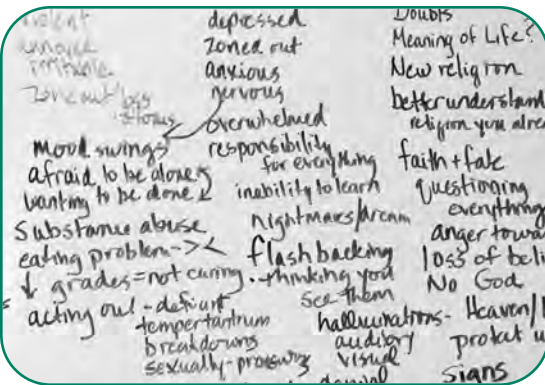 violent
irritable
zone out/loss
focus
mood swings
afraid to be alone
wanting to be alone
Substance abuse
eating problem ->
grades = not caring
acting out - defiant
tempertantrum
breakdowns
sexually -
depressed
zoned out
anxious
nervous
overwhelmed
responsibility
for everything
inability to learn
nightmares/dream
flash backing
thinking you
see them
hallucinations -
auditory
visual
denial
Doubts
Meaning of Life?
New religion
better understand
religion you alrea
faith + fate
Questioning
everything
anger towar
loss of beli
No God
Heaven/
protect u
signs